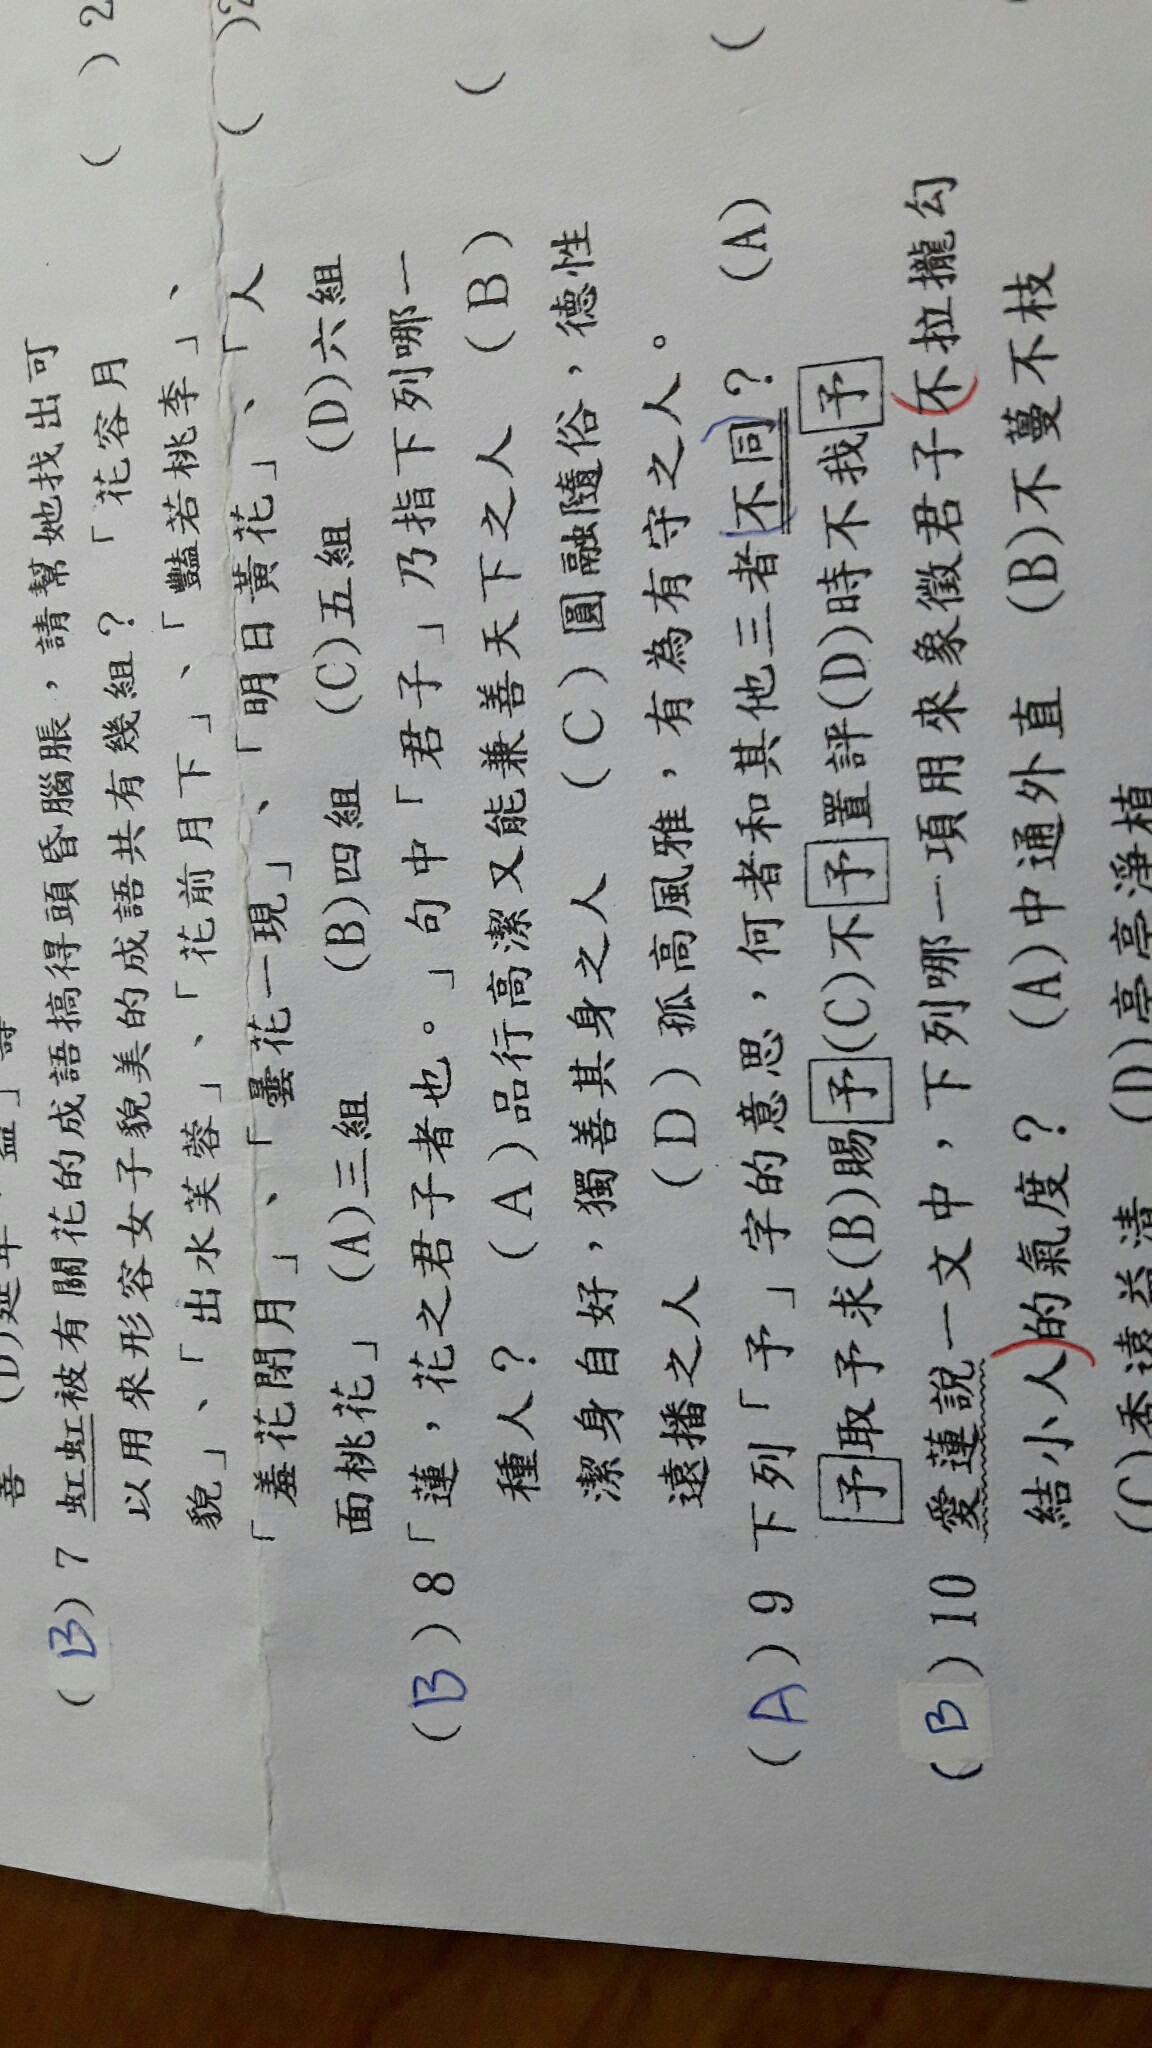 善 (D)延年「益」壽
(B)7 虹虹被有關花的成語搞得頭昏腦脹，請幫她找出可
以用來形容女子貌美的成語共有幾組？「花容月
貌」、「出水芙蓉」、「花前月下」、「豔若桃李」、
「羞花閉月」、「曇花一現」、「明日黃花」、「人
面桃花」 (A)三組 (B)四組 (C)五組 (D)六組
(B)8「蓮，花之君子者也。」句中「君子」乃指下列哪一
種人？ (A)品行高潔又能兼善天下之人 (B)
潔身自好，獨善其身之人 (C)圓融隨俗，德性
遠播之人 (D)孤高風雅，有為有守之人。
(A)9 下列「予」字的意思，何者和其他三者不同？ (A)
予取予求(B)賜予(C)不予置評(D)時不我予
(B)10 愛蓮說一文中，下列哪一項用來象徵君子不拉攏勾
結小人的氣度？ (A)中通外直 (B)不蔓不枝
(C)香遠益清 (D)亭亭淨植
( )2
( )2
(
(